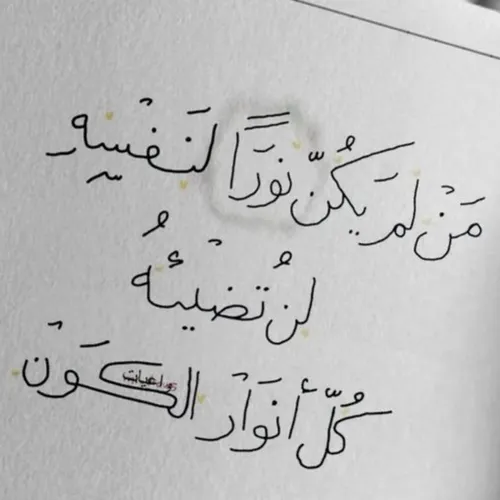 مَنْ لَم يَكُنّ نورًا لنَفْسِهِ
لن تُضْيئهُ
كُلّ أنوَار الكَوَنْ